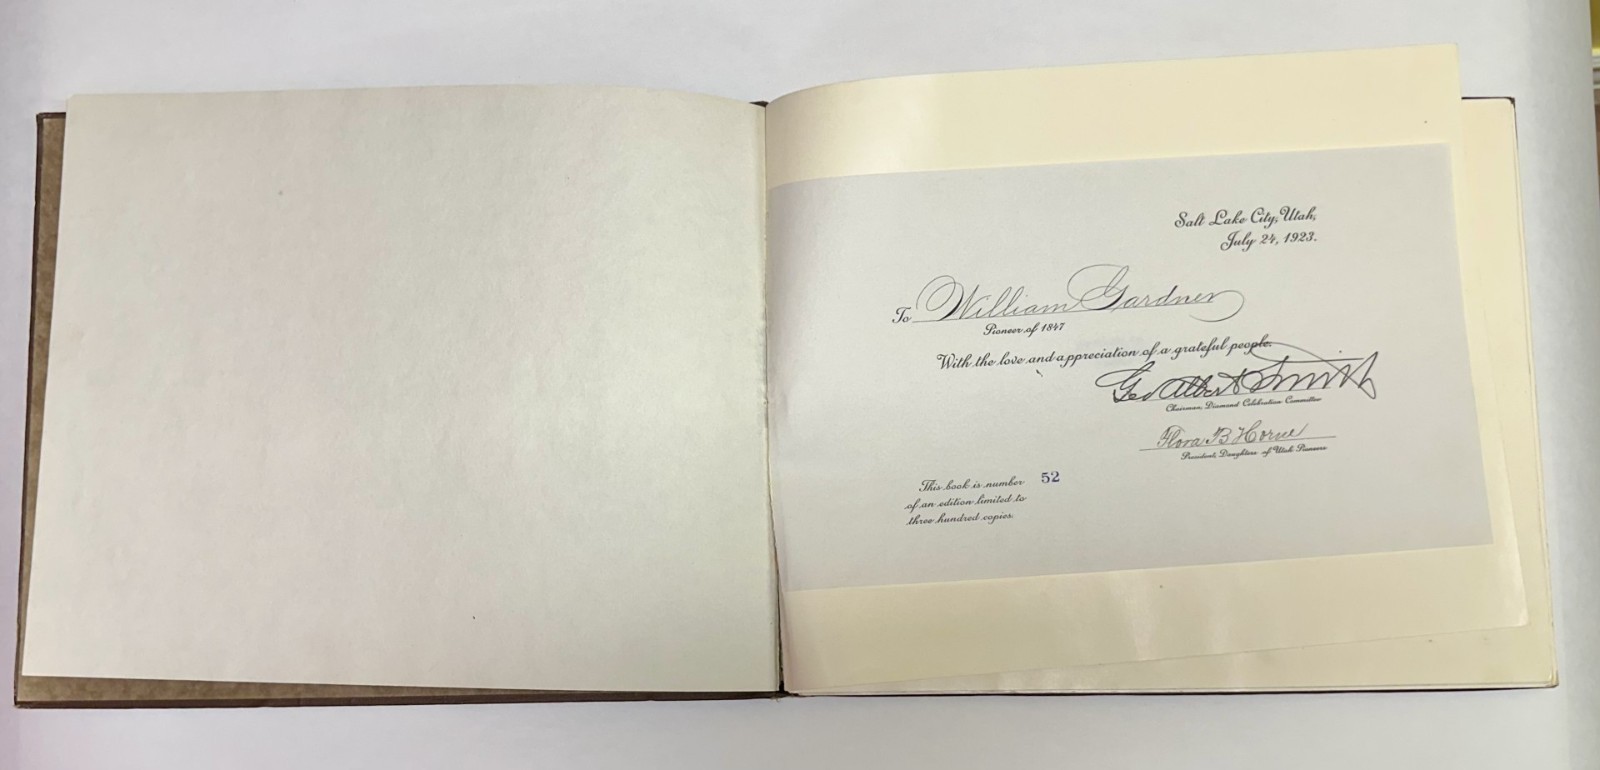 Salt Lake City, Utah,
July 24, 1923.
To William Gardner
Pioneer of 1847
With the love and appreciation of a grateful people.
Geo Albert Smith
Chairman, Diamond Celebration Committee
Flora B Horne
President, Daughters of Utah Pioneers
This book is number 52
of an edition limited to
three hundred copies.